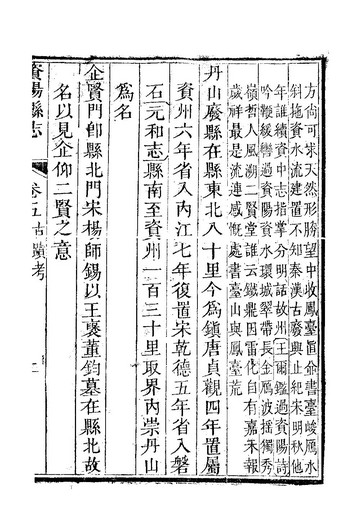 方尚可宋天然形勝望中收鳳臺眞侖書臺峻鴈水
斜拖資水流建置不知秦漢古廢興止紀宋明秋他
年誰續資中志指掌分明話故州王爾鑑過資陽詩
吟鞭緩轡過資陽資水環城翠帶長金鴈波摇獨秀
嶺哲人風溯二賢堂誰云鐵鼎因雷化自有嘉禾報
歲祥最是流連感慨處書臺山與鳳臺荒
丹山廢縣在縣東北八十里今爲鎭唐貞觀四年置屬
資州六年省入内江七年復置宋乾德五年省入磐
石元和志縣南至資州一百三十里取界内崇丹山
爲名
企賢門卽縣北門宋楊師錫以王褒董鈞墓在縣北故
名以見企仰二賢之意
資陽縣志
卷五古蹟考